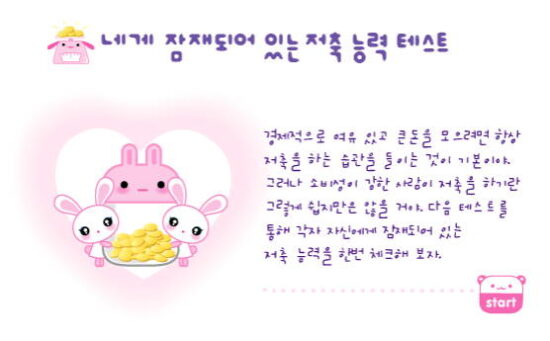 네게 잠재되어 있는 저축 능력 테스트
경제적으로 여유 있고 큰돈을 모으려면 항상
저축을 하는 습관을 들이는 것이 기본이야.
그러나 소비성이 강한 사람이 저축을 하기란
그렇게 쉽지만은 않을 거야. 다음 테스트를
통해 각자 자신에게 잠재되어 있는
저축 능력을 한번 체크해 보자.
start